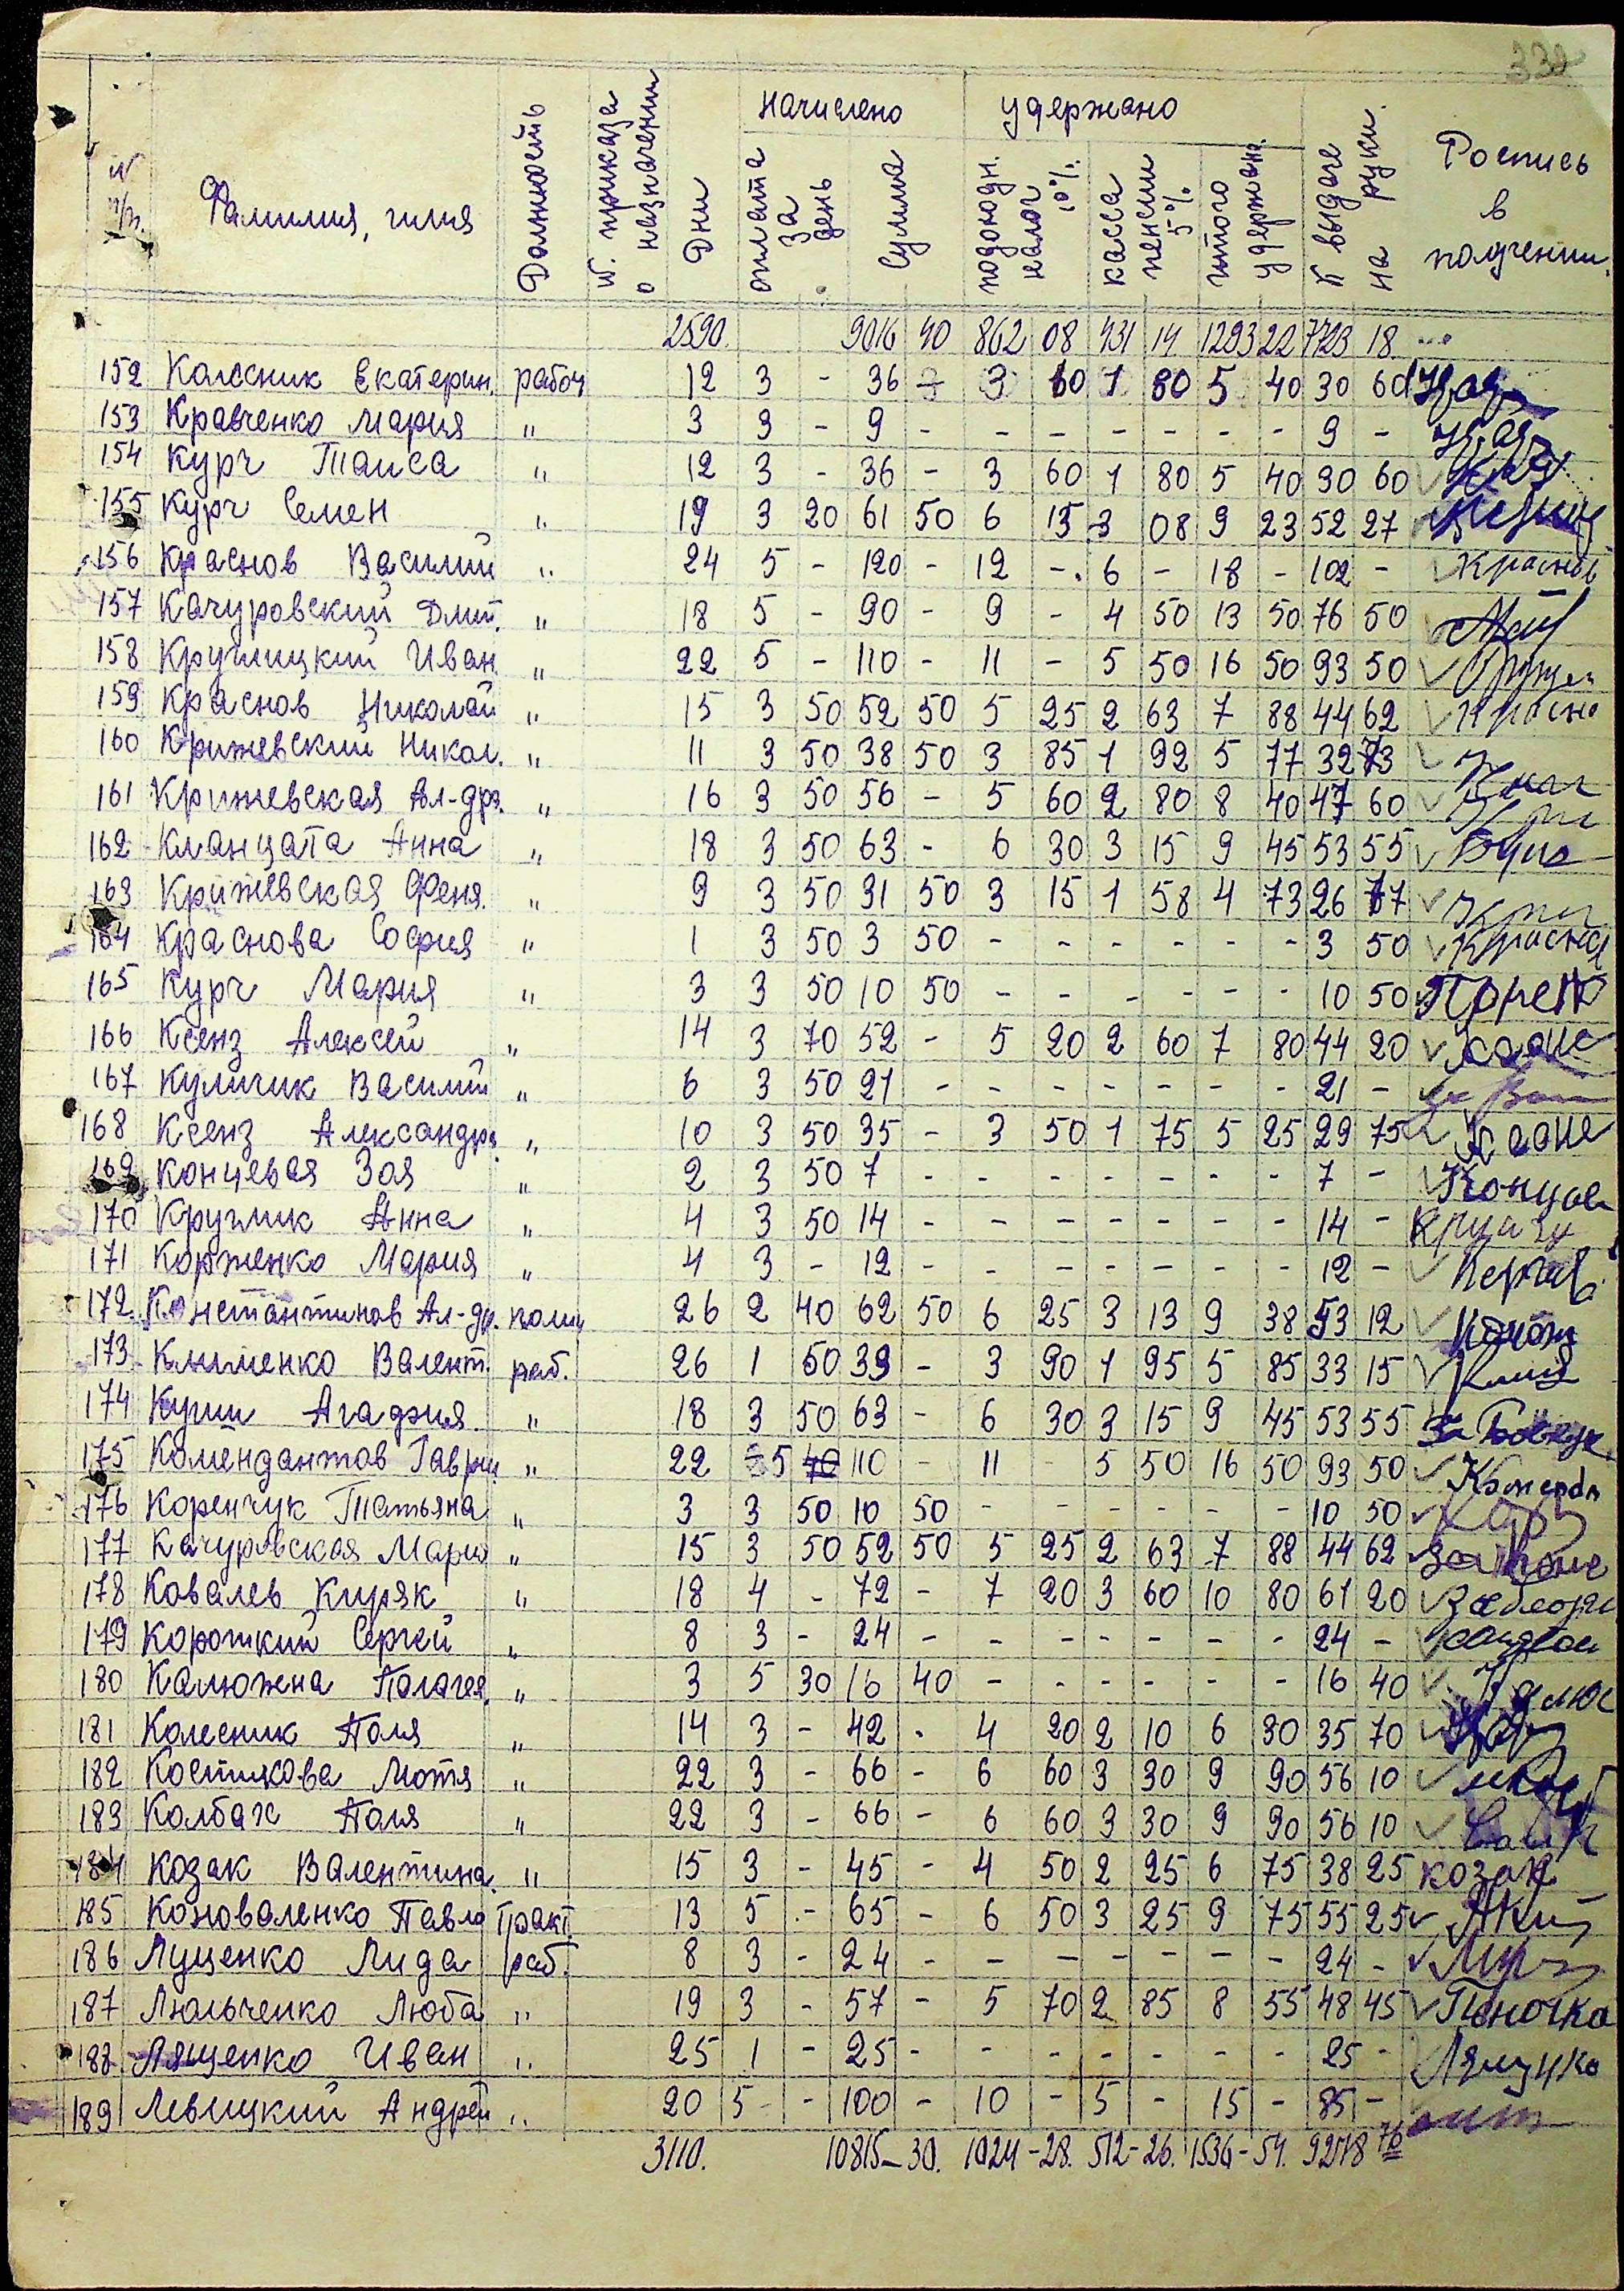 332
N п/п. Фамилия, имя Должность N. приказа о назначении Дни Начислено оплата за день Сумма удержано подоходн. налог 10%. касса пенсии 5%. итого удержано. К выдаче на руки. Роспись в получении.
2590. 9016 40 862 08 431 14 1293 22 7723 18
152 Колесник Екатерин. рабоч 12 3 - 36 - 3 60 1 80 5 40 30 60
153 Кравченко Мария " 3 3 - 9 - - - - - - - 9 -
154 Курч Таиса " 12 3 - 36 - 3 60 1 80 5 40 30 60
155 Курч Семен " 19 3 20 61 50 6 15 3 08 9 23 52 27
156 Краснов Василий " 24 5 - 120 - 12 - 6 - 18 - 102 - Краснов
157 Качуровский Дмит. " 18 5 - 90 - 9 - 4 50 13 50 76 50
158 Круглицкий Иван " 22 5 - 110 - 11 - 5 50 16 50 93 50
159 Краснов Николай " 15 3 50 52 50 5 25 2 63 7 88 44 62 Красно
160 Крижевский Никол. " 11 3 50 38 50 3 85 1 92 5 77 32 73
161 Крижевская Ал-др. " 16 3 50 56 - 5 60 2 80 8 40 47 60
162 Кланцата Анна " 18 3 50 63 - 6 30 3 15 9 45 53 55
163 Крижевская Феня. " 9 3 50 31 50 3 15 1 58 4 73 26 77
164 Краснова София " 1 3 50 3 50 - - - - - - 3 50
165 Курч Мария " 3 3 50 10 50 - - - - - - 10 50
166 Ксенз Алексей " 14 3 70 52 - 5 20 2 60 7 80 44 20
167 Куличик Василий " 6 3 50 21 - - - - - - - 21 -
168 Ксенз Александр. " 10 3 50 35 - 3 50 1 75 5 25 29 75
169 Концевая Зоя " 2 3 50 7 - - - - - - - 7 - Концев
170 Круглик Анна " 4 3 50 14 - - - - - - - 14 -
171 Корженко Мария " 4 3 - 12 - - - - - - - 12 -
172 Константинов Ал-др. 26 2 40 62 50 6 25 3 13 9 38 53 12
173 Клименко Валент. раб. 26 1 50 39 - 3 90 1 95 5 85 33 15
174 Кугии Агафия. " 18 3 50 63 - 6 30 3 15 9 45 53 55
175 Комендантов Гаврил " 22 5 40 110 - 11 - 5 50 16 50 93 50 Коменда
176 Коренчук Татьяна " 3 3 50 10 50 - - - - - - 10 50
177 Качуровская Мария " 15 3 50 52 50 5 25 2 63 7 88 44 62
178 Ковалев Киряк " 18 4 - 72 - 7 20 3 60 10 80 61 20
179 Короткий Сергей " 8 3 - 24 - - - - - - - 24 -
180 Калюжена Палагея. " 3 5 30 16 40 - - - - - - 16 40
181 Колесник Поля " 14 3 - 42 - 4 20 2 10 6 30 35 70
182 Костикова Мотя " 22 3 - 66 - 6 60 3 30 9 90 56 10
183 Колбах Поля " 22 3 - 66 - 6 60 3 30 9 90 56 10
184 Козак Валентина. " 15 3 - 45 - 4 50 2 25 6 75 38 25 козак
185 Коноваленко Павло Тракт. 13 5 - 65 - 6 50 3 25 9 75 55 25
186 Луценко Лида раб. 8 3 - 24 - - - - - - - 24 -
187 Люльченко Люба " 19 3 - 57 - 5 70 2 85 8 55 48 45
188 Лященко Иван " 25 1 - 25 - - - - - - - 25 -
189 Левицкий Андрей " 20 5 - 100 - 10 - 5 - 15 - 85 -
3110. 10815-30. 1024-28. 512-26. 1536-54. 9278 76